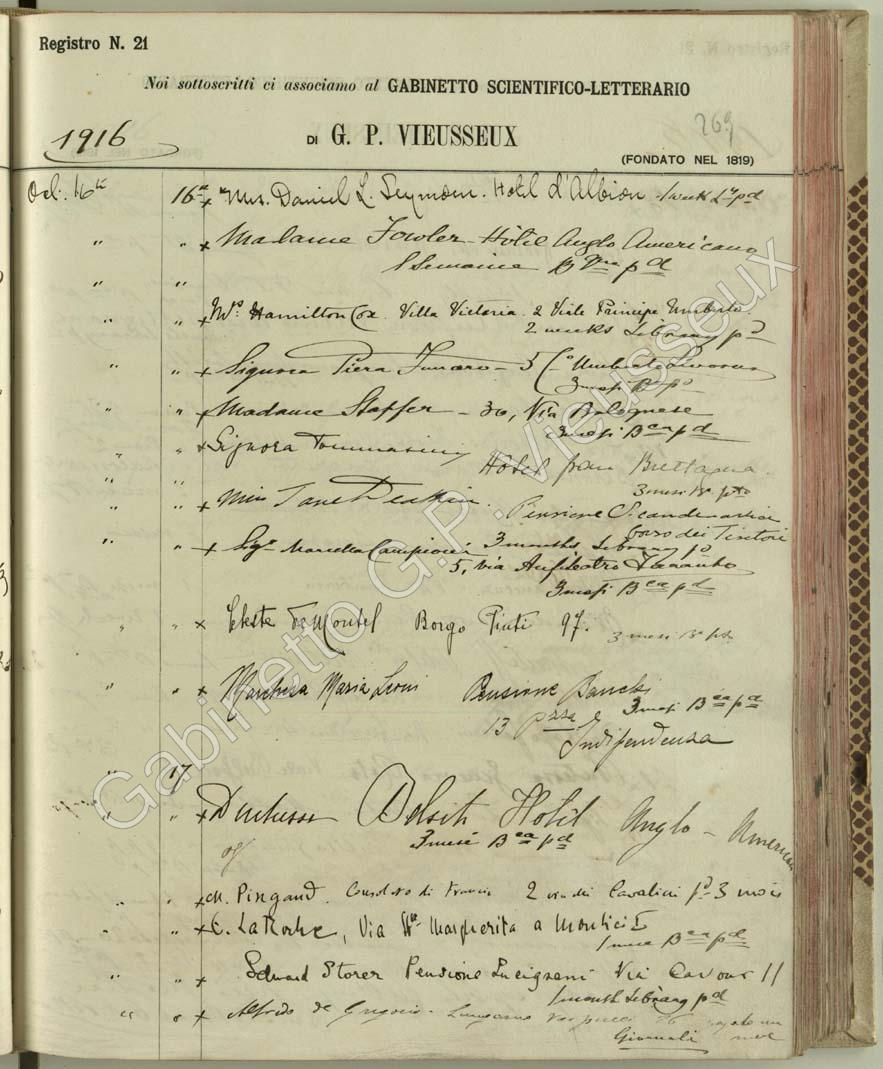 Registro N. 21
Noi sottoscritti ci associamo al GABINETTO SCIENTIFICO-LETTERARIO
269
1916
DI G. P. VIEUSSEUX
(FONDATO NEL 1819)
Oct. 16th 16th x Mrs. Daniel L. Seymour. Hotel d'Albion 1 week Ly pd
" " x Madame Fowler - Hôtel Anglo Americano
1 Semaine pd
" "
" " x Mrs. Hamilton Cox. Villa Victoria. 2 Viale Principe Umberto.
2 weeks Library pd
" " x Signora Piera - 5
3 mesi
" " x Madame Staffer - 30, Via Bolognese
3 mesi Bca pd
" " x Signora Tommasini
Hôtel gran Brettagna.
" " 3 mesi Ba pto
" " x Miss Jane Deakin. Pensione Scandinavian
Corso dei Tintori
3 months Library pd
" " x Sigra Marcella
5, via Anfiteatro Taranto
3 mesi Bca pd
" " x Celeste de Montel Borgo Pinti 97.
3 mesi Ba pd.
" " x Marchesa Maria Leoni Pensione Banchi
3 mesi Bca pd
13 Pzza
Indipendenza
" 17
" " x Duchesse Hotel Anglo-American
3 mesi Bca pd
of
" " x M. Pingaud. Consolato di Francia 2 via dei Cavalini pd 3 mois
" " x C. LaRoche, Via Sta Margherita a Montici
1 mese Bca pd
" " x Edward Storer Pensione Lucignani Via Cavour 11
1 month Library pd
" " x Alfredo de Gregorio - Lungarno Vespucci 26 pagato un
Giornali mese
Gabinetto G.P. Vieusseux